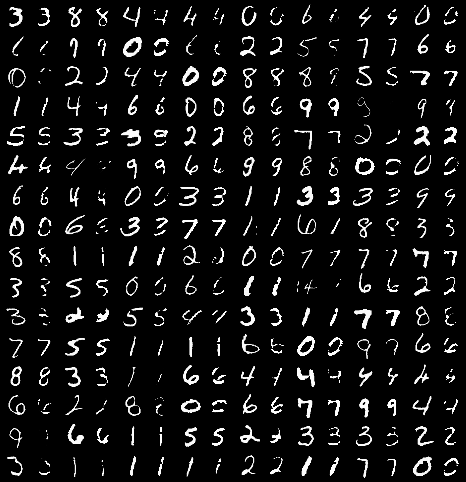 3 3 8 8 4 4 4 4 0 0 6 6 4 4 0 0
9 9 0 0 6 6 2 2 5 5 7 7 6 6
0 2 2 4 4 0 0 8 8 8 9 5 5 7 7
1 1 4 4 6 6 0 0 6 6 9 9 9 9 9
5 5 3 3 3 9 2 2 8 8 7 7 2 2 2
4 4 4 9 9 6 6 9 9 8 8 0 0 0 0
6 6 4 4 0 0 3 3 1 1 3 3 3 3 9 9
0 0 6 6 3 3 7 7 1 1 6 1 8 8 3 3
8 8 1 1 1 1 2 2 0 0 7 7 7 7 7 7
3 3 5 5 0 0 6 6 1 1 4 6 6 2 2
3 3 2 2 5 5 4 4 3 3 1 1 7 7 8 8
7 7 5 5 1 1 1 1 6 6 0 0 9 9 6 6
8 8 3 3 1 1 6 6 4 4 4 4 4 4 4 4
6 6 2 2 8 8 0 0 6 6 7 7 9 9 4 4
9 6 6 1 1 5 5 2 2 3 3 3 3 2 2
3 3 1 1 1 1 1 1 2 2 1 1 7 7 0 0